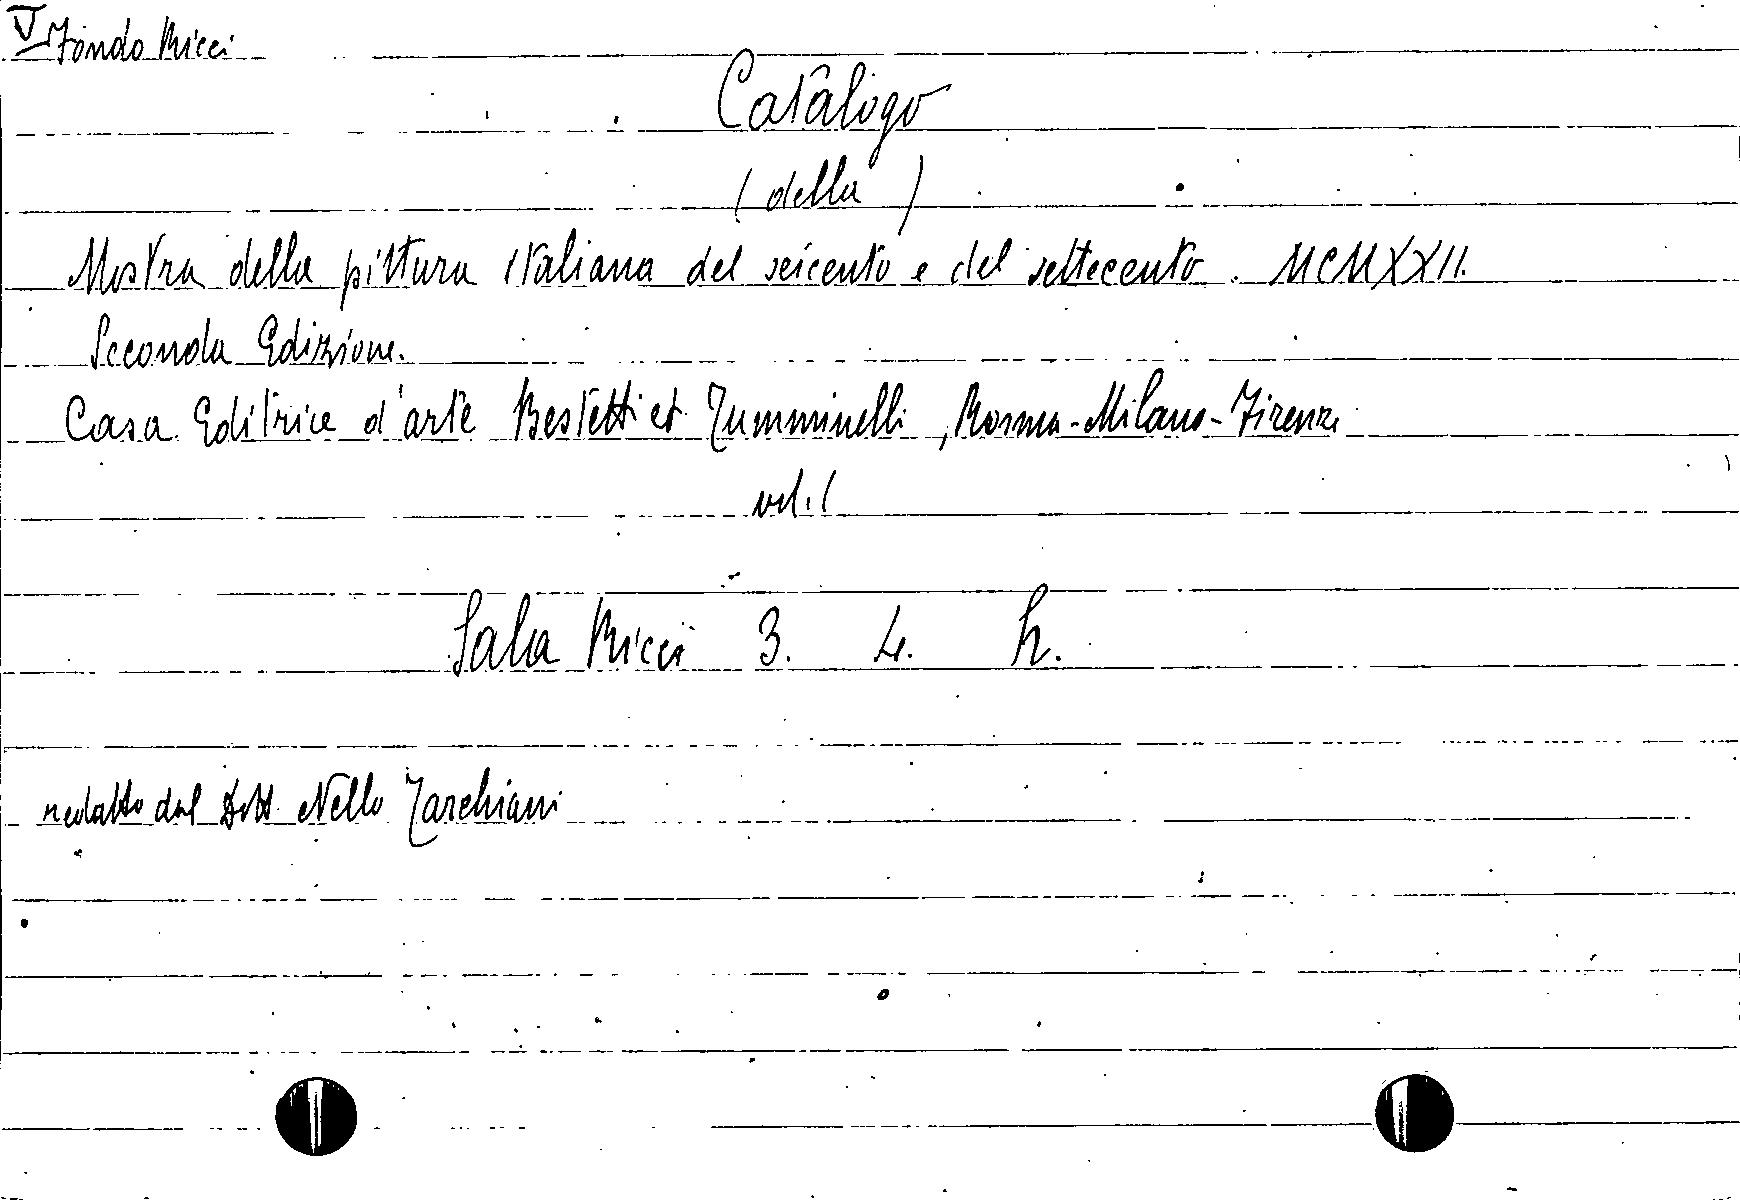 V Fondo Ricci
Catalogo
(della)
Mostra della pittura italiana del seicento e del settecento. MCMXXII.
Seconda Edizione.
Casa Editrice d'arte Bestetti et Tumminelli, Roma-Milano-Firenze
vol. 1
Sala Ricci 3. 4. h.
redatto dal Dott. Nello Tarchiani